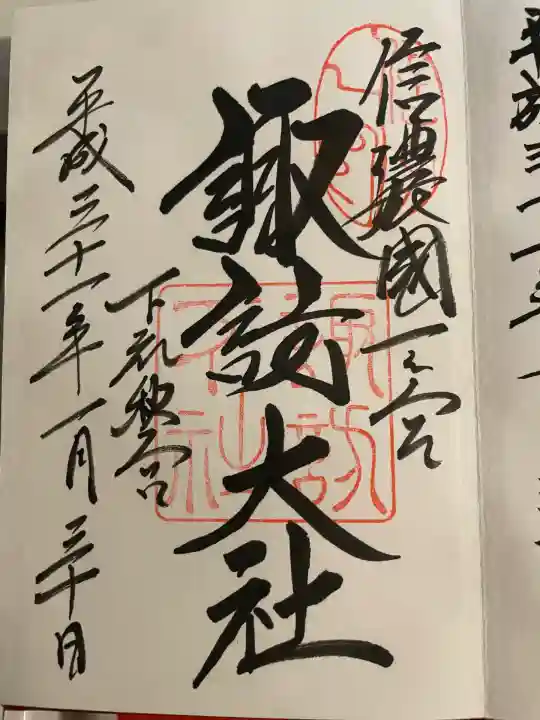 信濃國一之宮
諏訪大社
下社秋宮
平成三十一年一月三十日